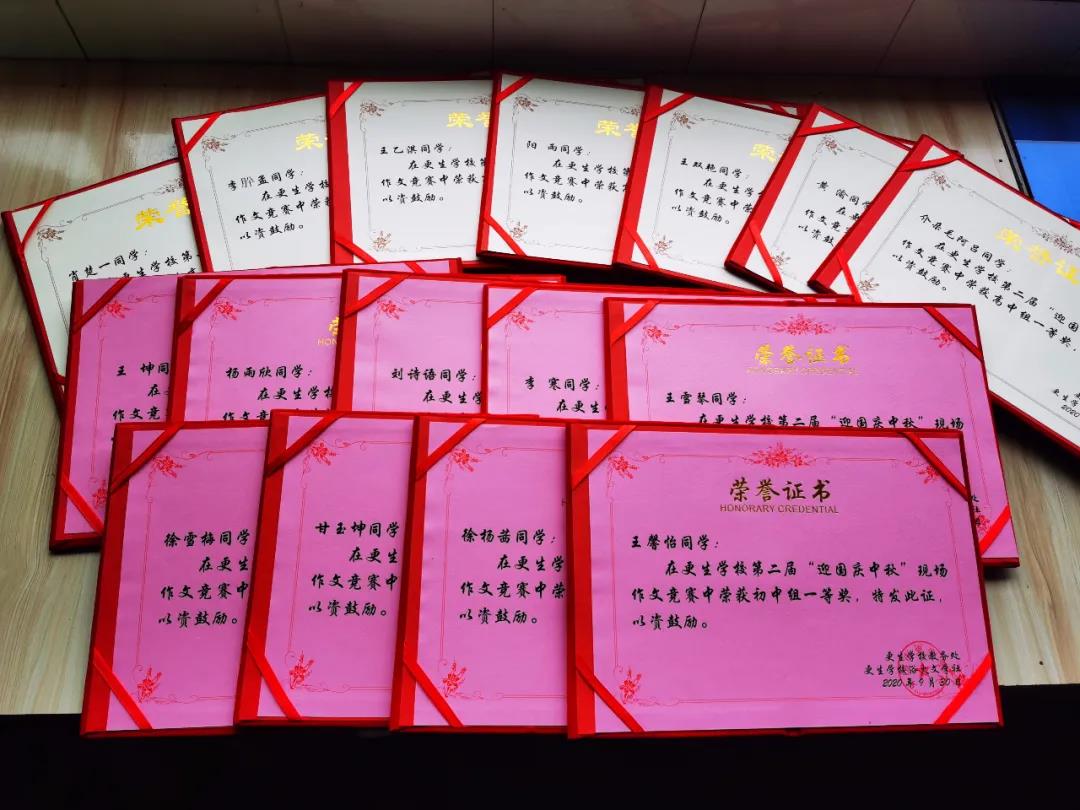 荣誉
肖楚一同学:
更生学校第
作文竞赛中荣
以资鼓励。
荣
孟同学:
在更生学校第
作文竞赛中荣获
以资鼓励。
荣
王乙淇同学:
在更生学校第
作文竞赛中荣获
以资鼓励。
荣
阳 雨同学:
在更生学校第
作文竞赛中荣获
以资鼓励。
荣
王双艳同学:
在更生学校
作文竞赛中荣
以资鼓励。
渝同
在更
作文竞赛
以资鼓励
荣誉证
介朵毛阿吕同学:
在更生学校第二届“迎国
作文竞赛中荣获高中组一等奖,
以资鼓励。
更生学
2020
王 坤同
在更
作文竞
以资
荣
HON
杨雨欣同学:
在更生学校
刘诗语同学:
在更生学
李 寒同学:
在更生
荣誉证书
HONORARY CREDENTIAL
王雪琴同学:
在更生学校第二届“迎国庆中秋”现场
徐雪梅同学
在更生
作文竞赛中
以资鼓励。
甘玉坤同学
在更生
作文竞赛中
以资鼓励。
徐杨茜同学:
在更生
作文竞赛中荣
以资鼓励。
荣誉证书
HONORARY CREDENTIAL
王馨怡同学:
在更生学校第二届“迎国庆中秋”现场
作文竞赛中荣获初中组一等奖,特发此证,
以资鼓励。
更生学校教务处
更生学校浴火文学社
2020年9月30日